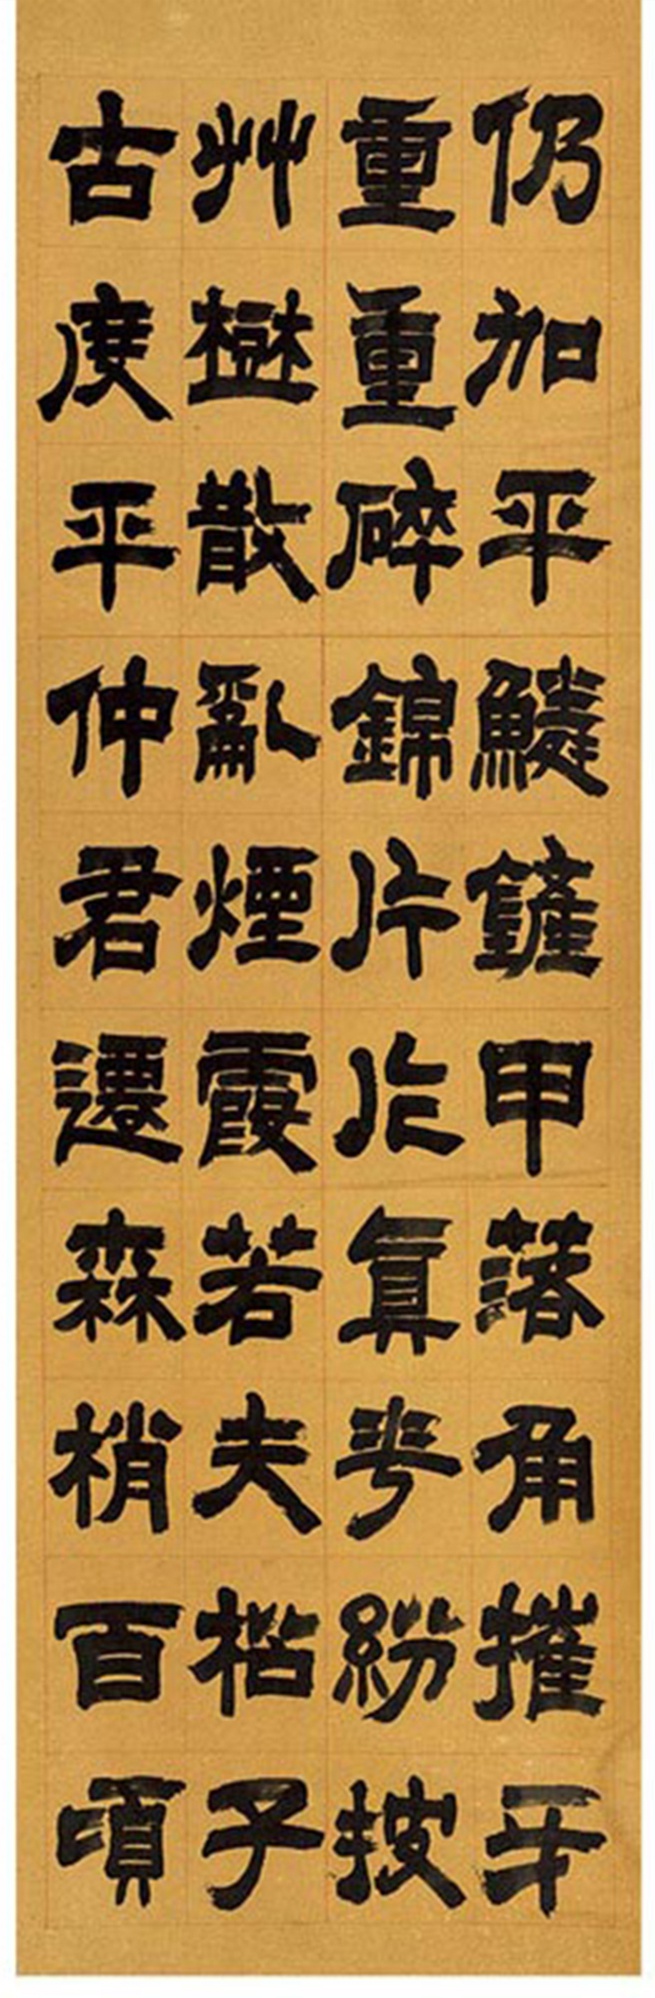 仍加平鱗鏟甲落角摧牙
重重碎錦片片真花紛披
艸樹散亂煙霞若夫松子
古度平仲君遷森梢百頃